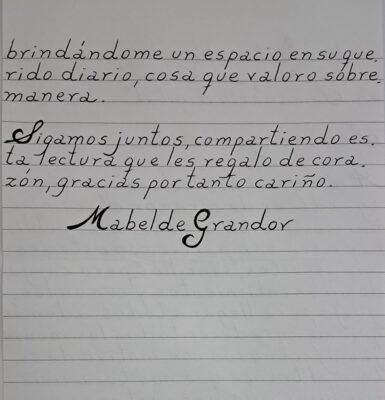 brindándome un espacio en su que.
rido diario, cosa que valoro sobre.
manera.
Sigamos juntos, compartiendo es.
ta lectura que les regalo de cora.
zón, gracias por tanto cariño.
Mabel de Grandov